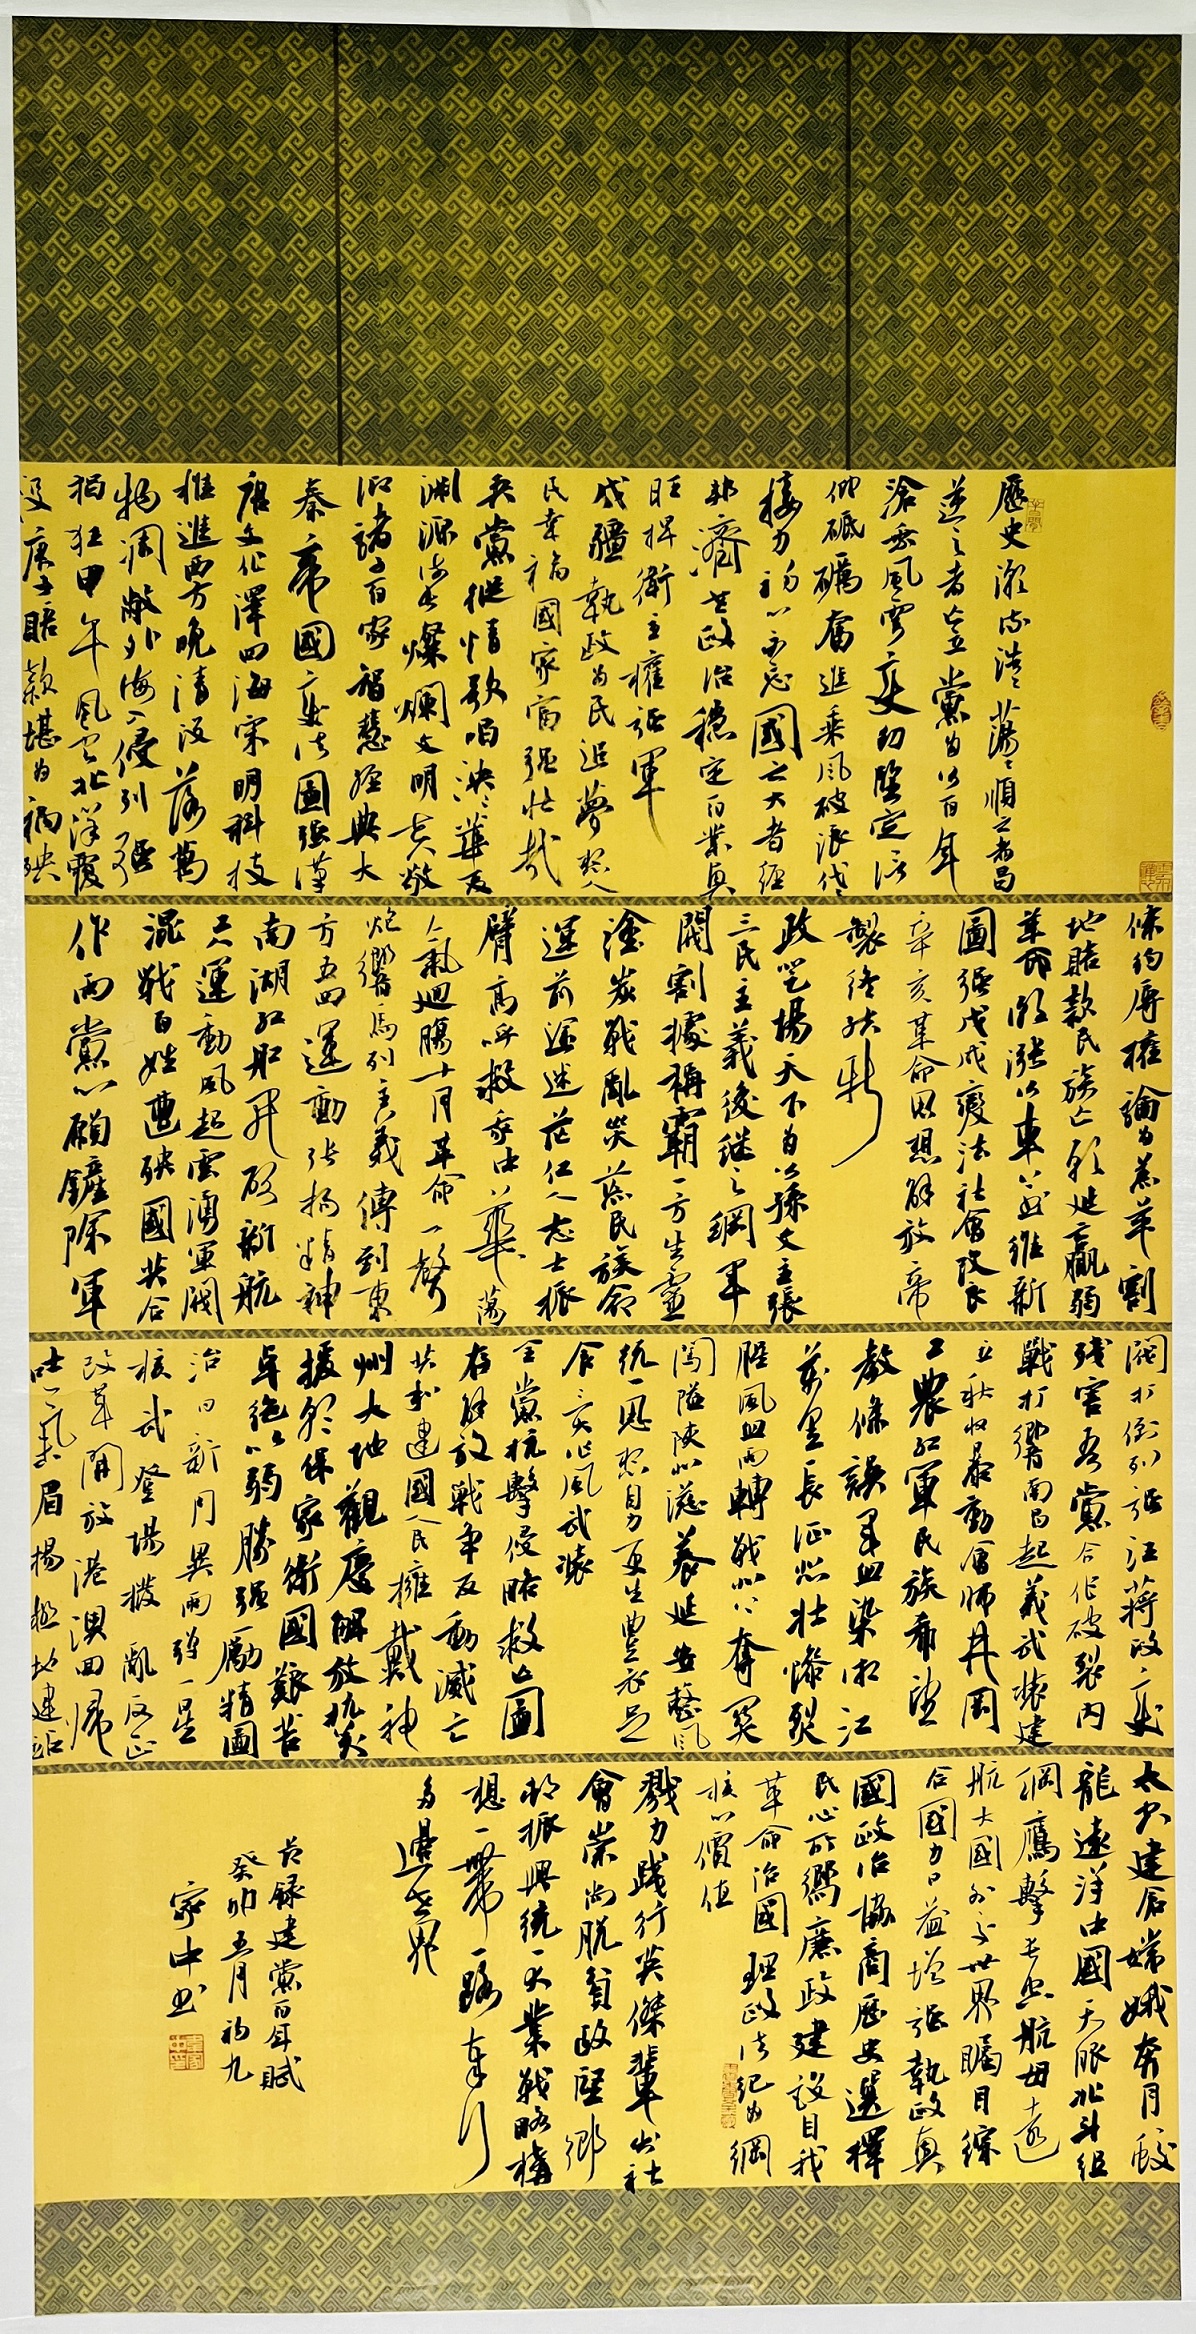 歷史潮流浩浩蕩蕩順之者昌
逆之者亡吾黨為公百年
滄桑風雲變幻堅定信
仰砥礪奮進乘風破浪代代
接力初心不忘國之大者經
邦濟世政治穩定百業興
旺捍衛主權強軍
戍疆執政為民追夢
民幸福國家富強壯哉
吾黨縱情歌唱泱泱華夏
淵源流長燦爛文明
諸子百家智慧經典大
秦帝國變法圖強漢
唐文化澤四海宋明科技
推進西方晚清沒落萬
物凋敝外海入侵列強
猖狂甲午風雲北洋覆
沒庚子賠款堪為禍殃
條約辱權論為羔羊割
地賠款民族亡羸弱
革命潮漲公車上書維新
圖強戊戌變法社會改良
辛亥革命思想解放帝
製終結新
政登場天下為公孫文主張
三民主義後繼之綱軍
閥割據稱霸一方生靈
塗炭戰亂災荒民族命
運前途迷茫仁人志士振
臂高呼救我中華蕩
氣迴腸十月革命一聲
炮響馬列主義傳到東
方五四運動張揚精神
南湖紅船開啟新航
工運動風起雲湧軍閥
混戰百姓遭殃國共合
作兩黨心願鏟除軍
閥打倒列強汪蔣政變
殘害吾黨合作破裂內
戰打響南昌起義武裝建
立秋收暴動會師井岡
工農紅軍民族希望
教條誤軍血染湘江
萬里長征悲壯慘烈
腥風血雨轉戰北上奪關
闖隘陝北滋養延安整風
統一思想自力更生豐衣足
食三灾作風武裝
全黨抗擊侵略救亡圖
存解放戰爭反動滅亡
共和建國人民擁戴神
州大地觀慶解放抗美
援朝保家衛國艱苦
卓絕以弱勝強勵精圖
治日新月異兩彈一星
核武登場撥亂反正
改革開放港澳回歸
吐氣眉揚極地建站
太空建居嫦娥奔月蛟
龍遠洋中國天眼北斗組
網鷹擊長空航母遠
航大國外交世界矚目綜
合國力日益增強執政興
國政治協商歷史選擇
民心所嚮廉政建設自我
革命治國理政法紀為綱
核心價值
戮力踐行英傑輩出社
會崇尚脫貧政堅鄉
村振興統一大業戰略構
想一帶一路奉行
邊世界
節錄建黨百年賦
癸卯五月初九
家中書